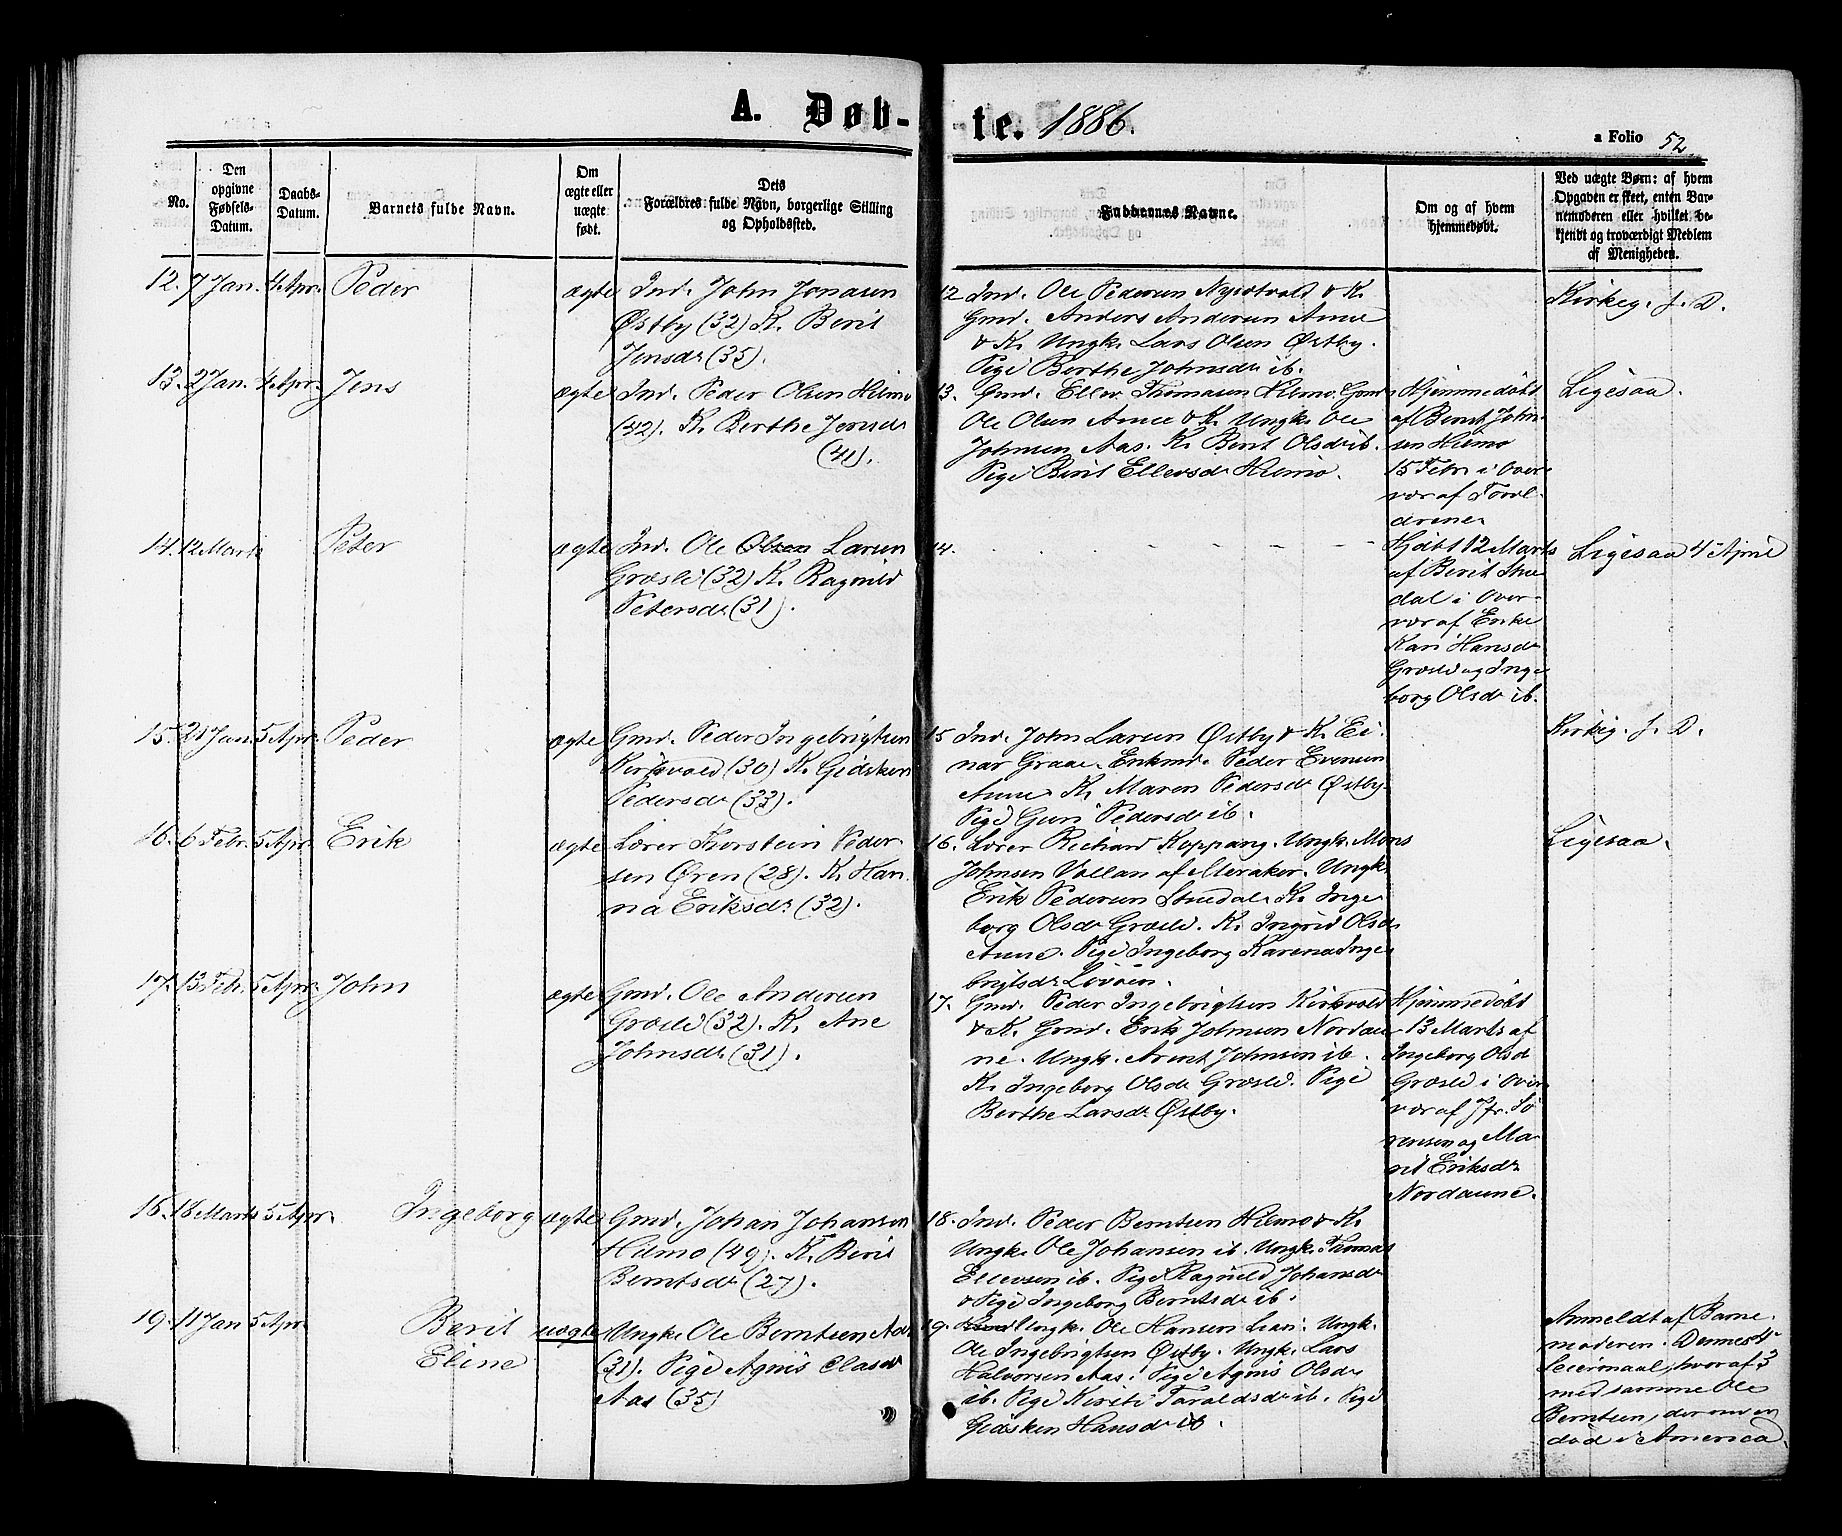 A. Døb-te. 1886.
a Folio 52
No.
Den opgivne Fødsels-Datum.
Daabs-Datum.
Barnets fulde Navn.
Om ægte eller uægte født.
Dets Forældres fulde Navn, borgerlige Stilling og Opholdssted.
Faddernes Navne.
Om og af hvem hjemmedøbt.
Ved uægte Børn: af hvem Opgaven er skeet, enten Barnemoderen eller hvilket bekjendt og troværdigt Medlem af Menigheden.
12. 7 Jan. 4 Apr. Peder ægte
Ind. John Jonasen
Østby (32) K. Berit
Jensdr (35).
12 Ind. Ole Pedersen Nyvold & K.
Gmd. Anders Andersen Aune
& K. Ungk. Lars Olsen Østby.
Pige Berthe Johnsdr ib.
Kirkeg. f. D.
13. 2 Jan. 4 Apr. Jens ægte
Ind. Peder Olsen Hilmo
(42). K. Berthe Jensdr
(41).
13. Gmd. Ellev Thomasen Hilmo. Gmd
Ole Olsen Aune & K. Ungk. Ole
Johnsen Aas. K. Berit Olsdr ib.
Pige Berit Ellevsdr Hilmo.
Hjemmedøbt
af Bernt John-
sen Hilmo
15 Febr. i Over-
vær af Foræl-
drene.
Ligesaa.
14. 12 Marts Peter ægte
Ind. Ole Olsen Larsen
Græsli (32) K. Ragnild
Petersdr (31).
14. - - - -
Hjdbt 12 Marts
af Berit Stue-
dal i Over-
vær af Enke
Kari Hansdr
Græsli og Inge-
borg Olsdr ib.
Ligesaa 4 April
15. 21 Jan. 5 Apr. Peder ægte
Gmd. Peder Ingebrigtsen
Kirkvold (30) K. Gidsken
Pedersdr (33).
15 Ind. John Larsen Østby & K. Ei-
nar Graae. Enkmd. Peder Evensen
Aune. K. Maren Pedersdr Østby.
Pige Guri Pedersdr ib.
Kirkig. f. D.
16. 6 Febr. 5 Apr. Erik ægte
Lærer Thorstein Peder-
sen Øren (28). K. Han-
na Eriksdr (32).
16. Lærer Richard Koppang. Ungk. Mons
Johnsen Vollan af Meraker. Ungk.
Erik Pedersen Stuedal. K. Inge-
borg Olsdr Græsli. K. Ingrid Olsdr
Aune. Pige Ingeborg Karena Inge-
brigtsdr Løvøen.
Ligesaa.
17. 13 Febr. 5 Apr. John ægte
Gmd. Ole Andersen
Græsli (32). K. Ane
Johnsdr (31).
17. Gmd. Peder Ingebrigtsen Kirkvold
& K. Gmd. Erik Johnsen Nordau-
ne. Ungk. Arent Johnsen ib.
K. Ingeborg Olsdr Græsli. Pige
Berthe Larsdr Østby.
Hjemmedøbt
13 Marts af
Ingeborg Olsd
Græsli i Over-
vær af Jfr. Sø-
rensen og Ma-
rit Eriksdr
Nordaune.
18. 18 Marts 5 Apr. Ingeborg ægte
Gmd. Johan Johansen
Hilmo (49). K. Berit
Berntsdr (27).
18. Ind. Peder Berntsen Hilmo & K.
Ungk. Ole Johansen ib. Ungk. Thomas
Ellevsen ib. Pige Ragnild Johansdr
& Pige Ingeborg Berntsdr ib.
19. 11 Jan 5 Apr. Berit
Eline
uægte
Ungk. Ole Berntsen Aas
(31). Pige Agnis Olasdr
Aas (35)
19. Ungk. Ole Hansen Lian. Ungk.
Ole Ingebrigtsen Østby. Ungk. Lars
Halvorsen Aas. Pige Agnis Olsdr
ib. Pige Kirsti Taraldsdr ib. Pige
Gidsken Hansdr ib.
Anmeldt af Barne-
moderen. Dennes 4de
Leiermaal, hvoraf 3
med samme Ole
Berntsen, der nu er
død i America.